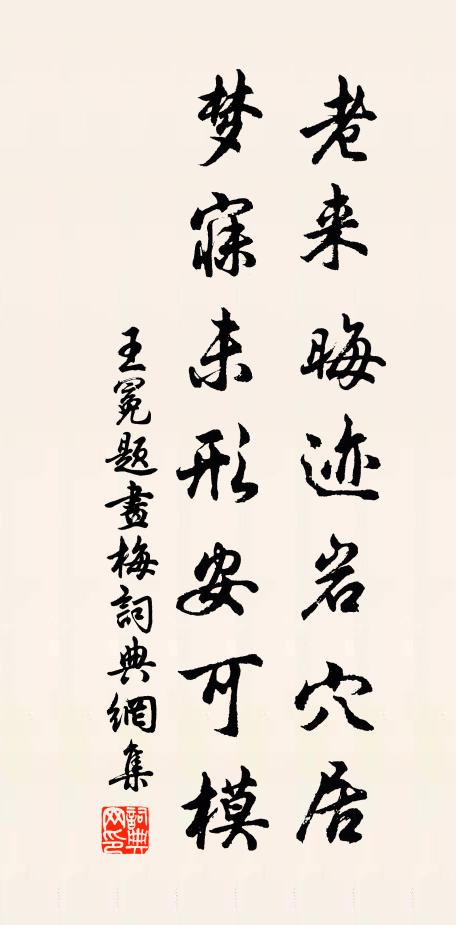 老来晦迹岩穴居
梦寐未形安可模
王冕题畫梅詞典網集